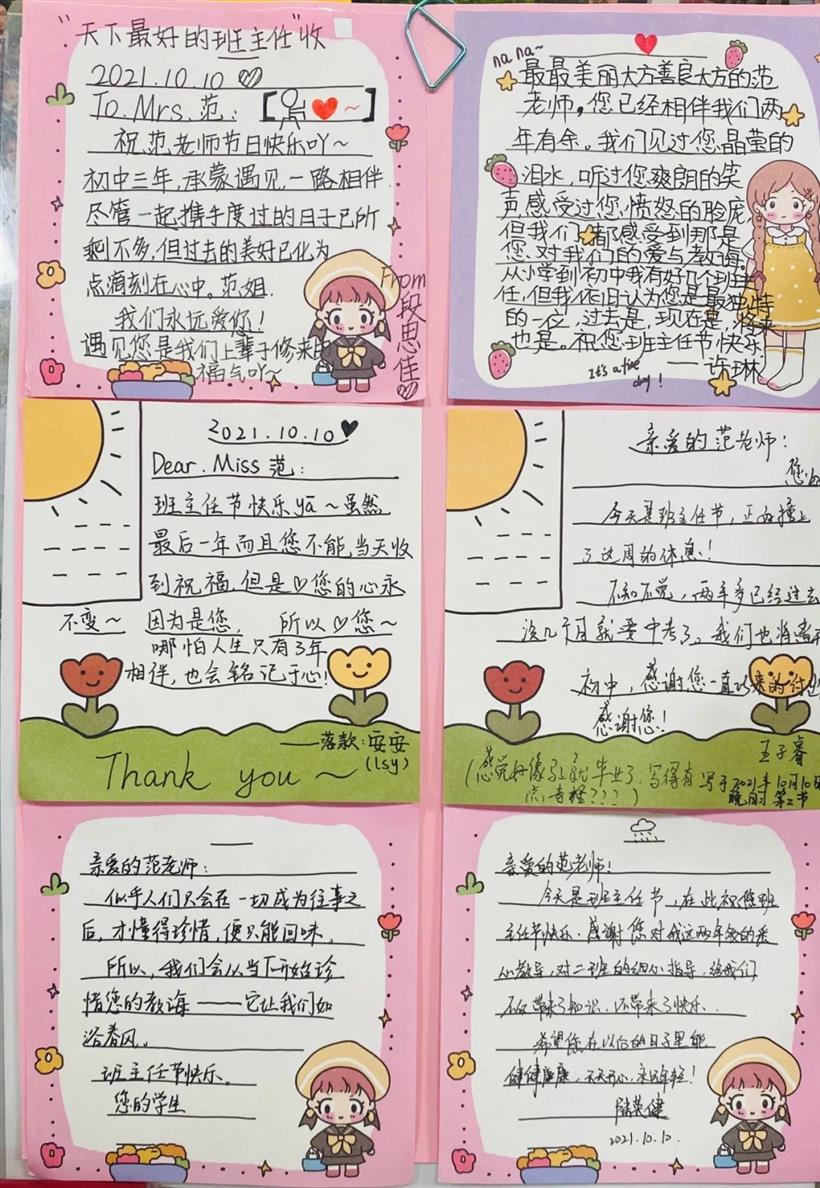 "天下最好的班主任"收
2021.10.10
To.Mrs.范：
祝范老师节日快乐吖～
初中三年,承蒙遇见,一路相伴
尽管一起携手度过的日子已所
剩不多,但过去的美好已化为
点滴刻在心中。范姐,
我们永远爱您！
遇见您是我们上辈子修来的
福气吖～
From
段思佳
na na~
最最美丽大方善良大方的范
老师,您已经相伴我们两
年有余。我们见过您晶莹的
泪水,听过您爽朗的笑
声,感受过您愤怒的脸庞
但我们都感受到那是
您对我们的爱与教诲
从小学到初中我有好几个班主
任,但我依旧认为您是最独特
的一位,过去是,现在是,将来
也是。祝您班主任节快乐
It's a fine
day!
——许琳
2021.10.10
Dear.Miss范:
班主任节快乐yā～虽然
最后一年而且您不能,当天收
到祝福,但是♡您的心永
不变～
因为是您, 所以♡您～
哪怕人生只有3年
相伴,也会铭记于心!
——落款:安安
(lsy)
Thank you ~
亲爱的范老师：
您
今天是班主任节,正好撞上
了这周的休息!
不知不觉,两年多已经过去
没几个月就要中考了。我们也将离开
初中,感谢您一直以来的付出
感谢您!
王子睿
(感觉好像马上就毕业了,写得有
点奇怪???)
写于2021年10月10日
晚自习 第二节
亲爱的范老师:
似乎人们只会在一切成为往事之
后,才懂得珍惜,便只能回味。
所以,我们会从当下开始珍
惜您的教诲——它让我们如
沐春风。
班主任节快乐。
您的学生
亲爱的范老师!
今天是班主任节,在此祝您班
主任节快乐。感谢您对我这两年多的悉
心教导,对二班的细心指导,给我们
不仅带来了知识,还带来了快乐.
希望您在以后的日子里能
健健康康,天天开心,永远年轻!
陆英健
2021.10.10.